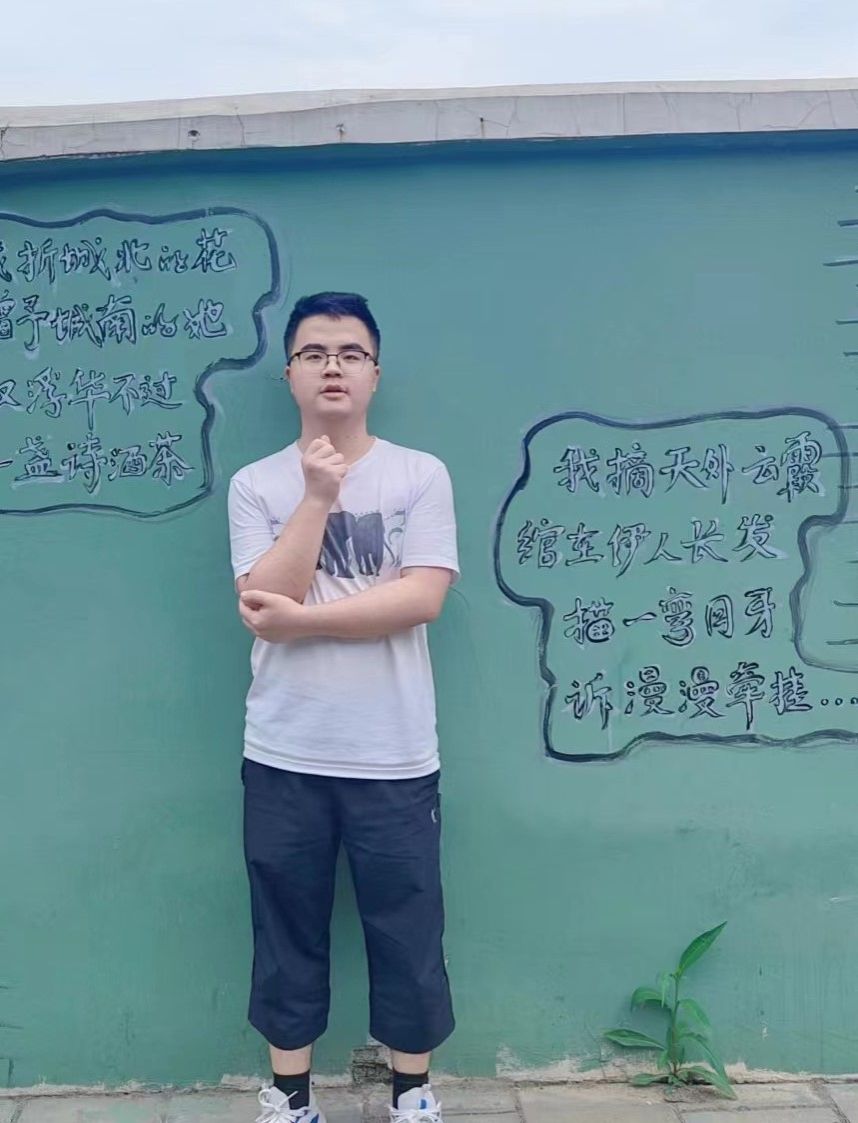 我折城北的花
赠予城南的她
叹浮华不过
一盏诗酒茶
我摘天外云霞
绾在伊人长发
描一弯月牙
诉漫漫牵挂...